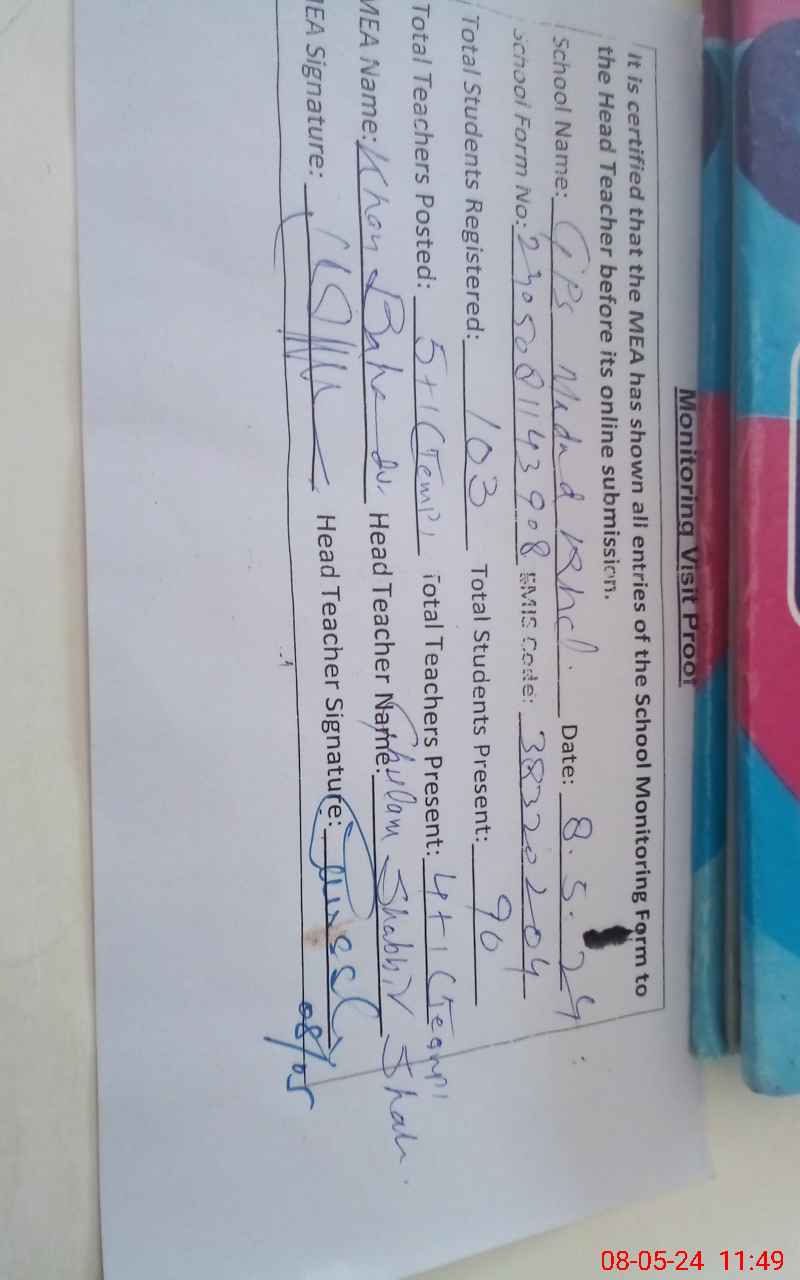 Monitoring Visit Proof
It is certified that the MEA has shown all entries of the School Monitoring Form to
the Head Teacher before its online submission.
School Name: GPS Madad Khel. Date: 8.5.24
School Form No: 2305081143908 EMIS Code: 38320204
Total Students Registered: 103 Total Students Present: 90
Total Teachers Posted: 5+1(Temp) Total Teachers Present: 4+1(Temp)
MEA Name: Khan Bahadur Head Teacher Name: Ghulam Shabbir Shah.
MEA Signature: Head Teacher Signature:
08/05
08-05-24 11:49